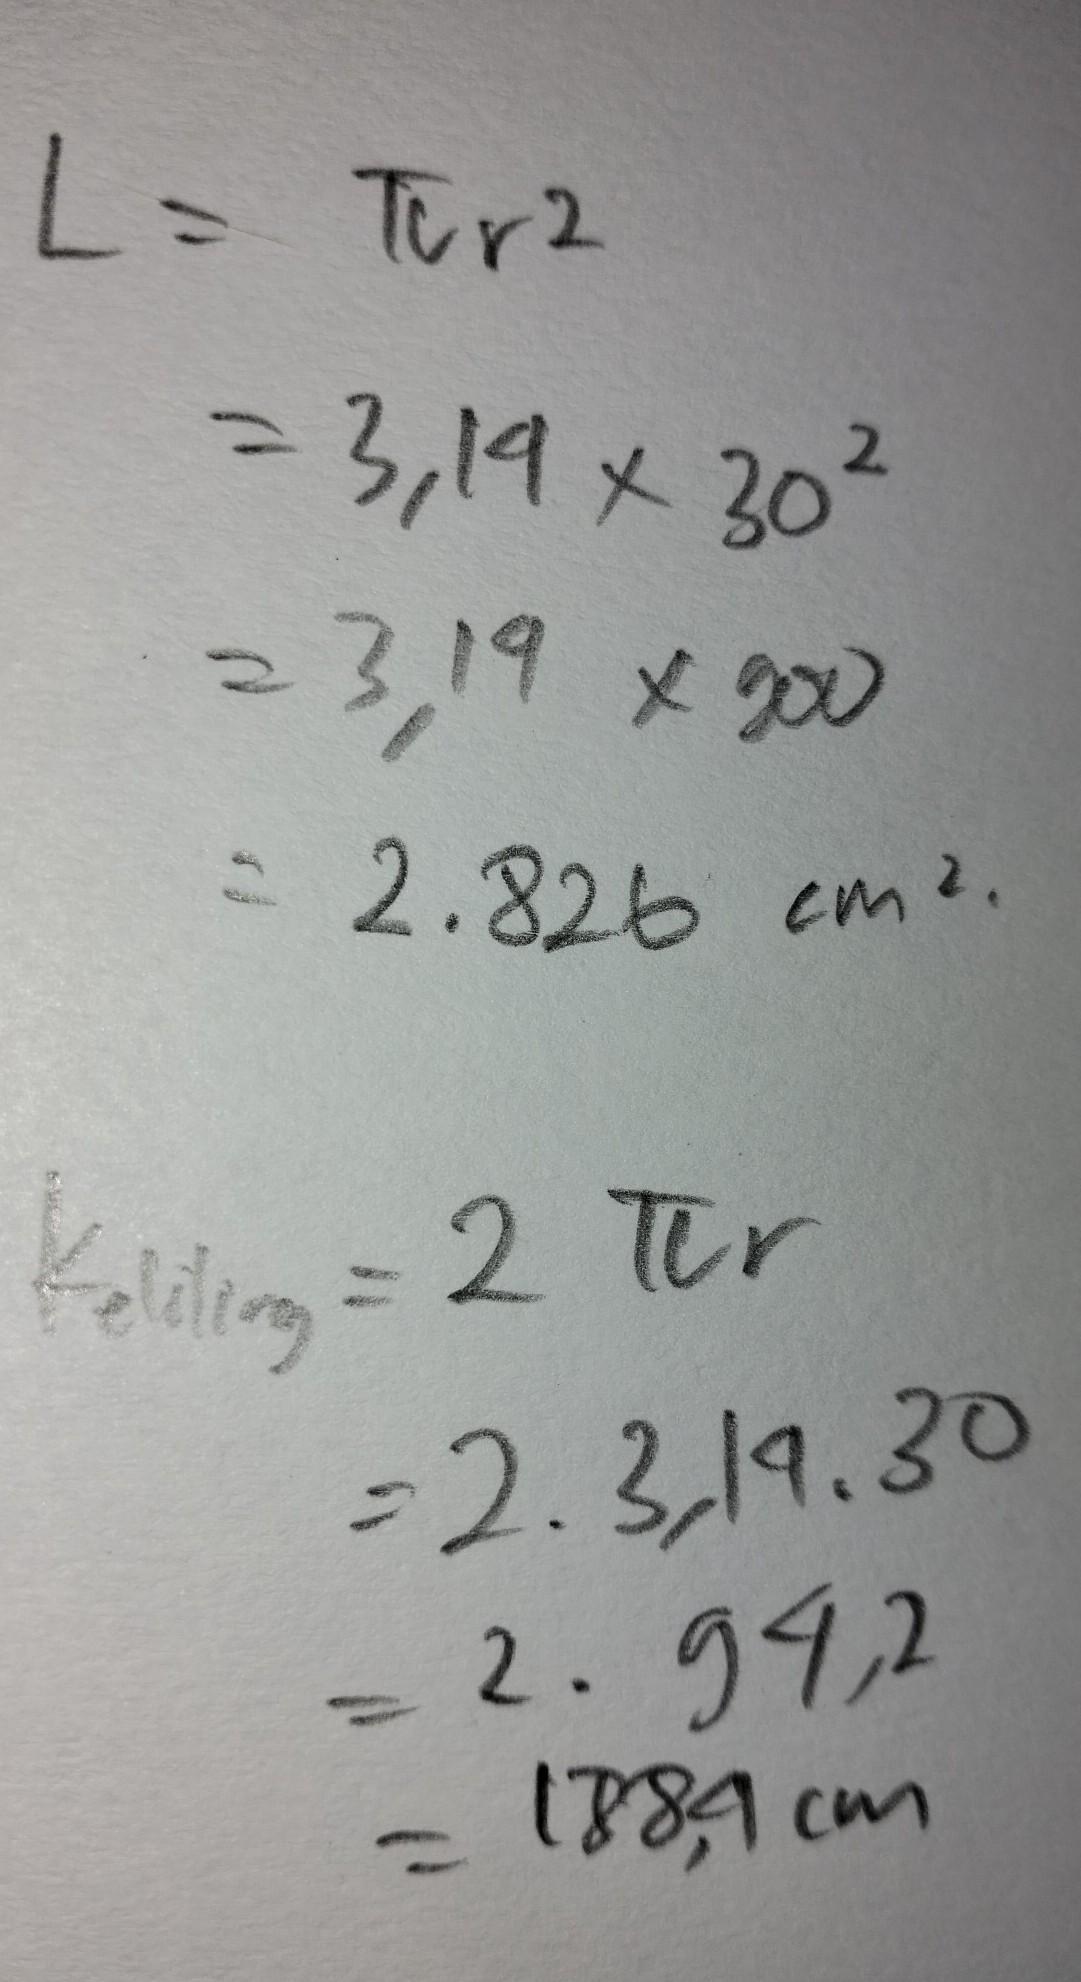 L = πr2
= 3,14 x 30²
= 3,14 x 900
= 2.826 cm².
Keliling = 2 πr
= 2. 3,14. 30
= 2. 94,2
= 188,4 cm